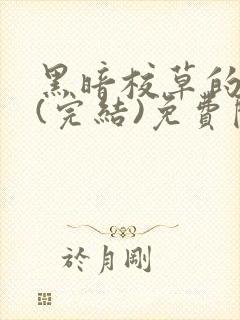 黑暗校草的
(完結)免費
於月剛